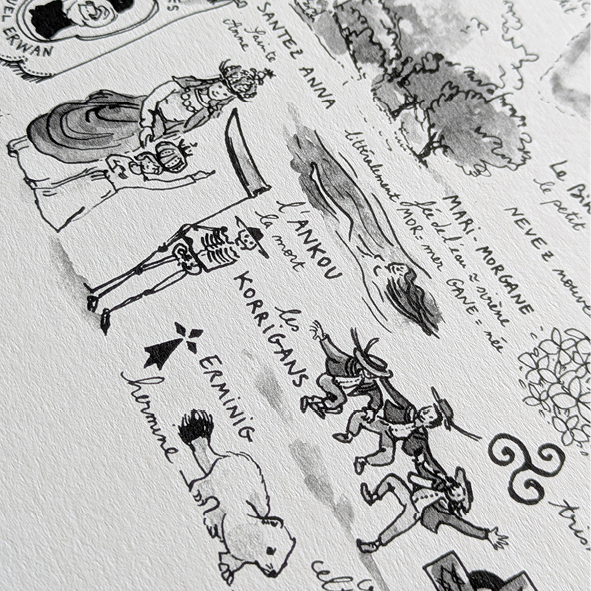 EL ERWAN
SANTEZ ANNA
Sainte
Anne
l'ANKOU
la mort
MARI-MORGANE
fée de l'eau ≈ sirène
littéralement MOR = mer GANE = née
Le
le petit
NEVEZ nouve
les
KORRIGANS
ERMINIG
hermine
tris
celt